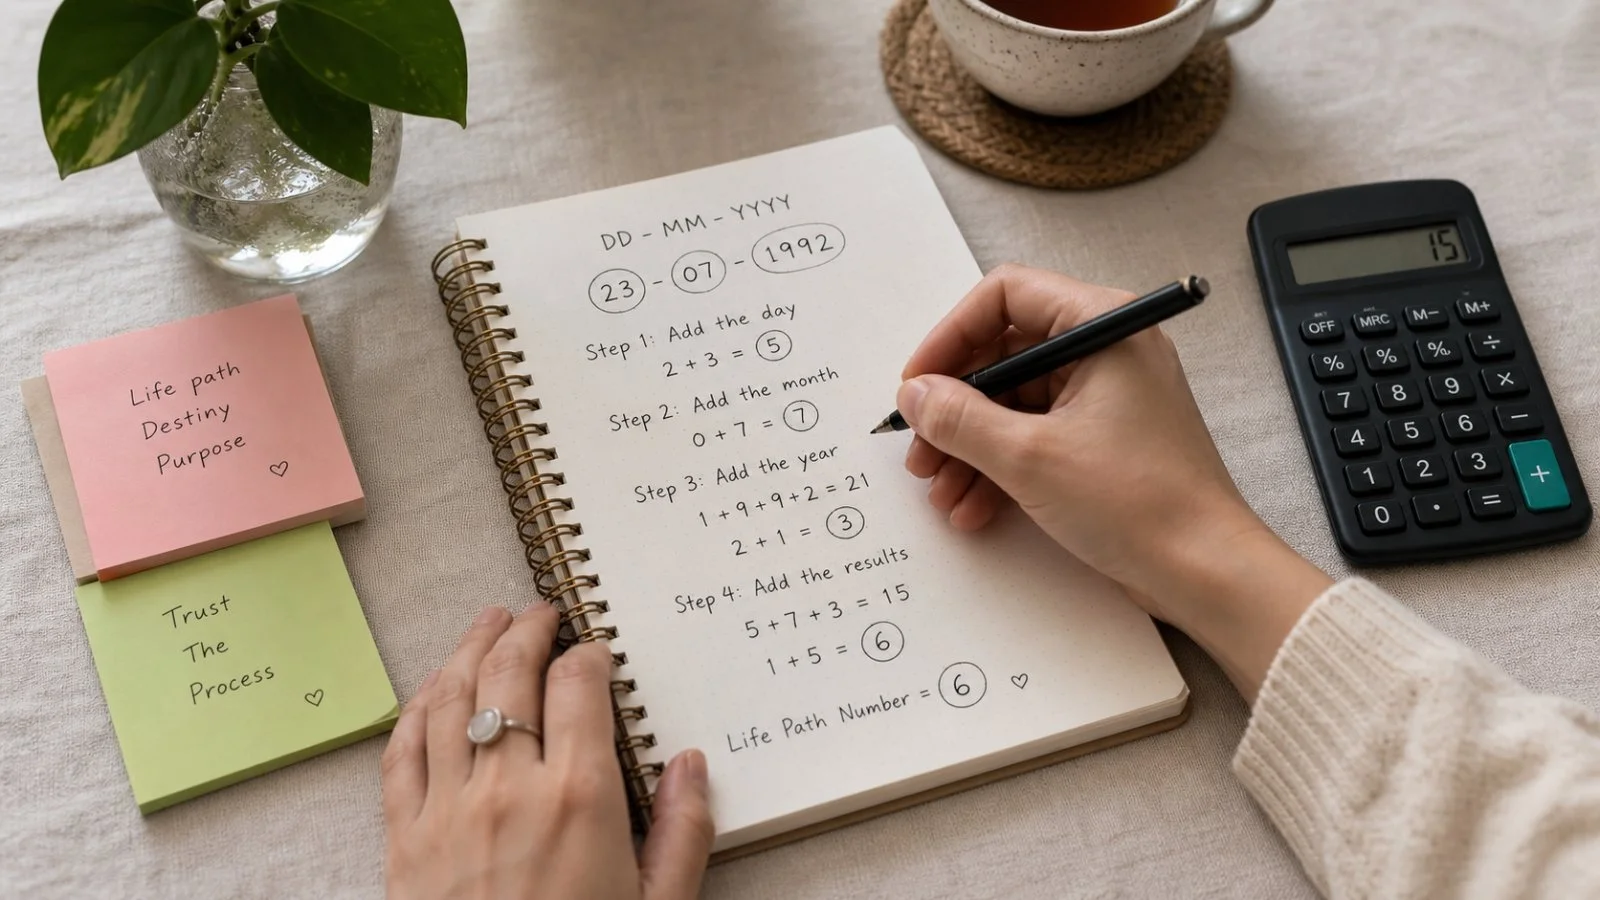 DD - MM - YYYY
23 - 07 - 1992
Step 1: Add the day
2 + 3 = 5
Step 2: Add the month
0 + 7 = 7
Step 3: Add the year
1 + 9 + 9 + 2 = 21
2 + 1 = 3
Step 4: Add the results
5 + 7 + 3 = 15
1 + 5 = 6
Life Path Number = 6 ♡
Life path
Destiny
Purpose ♡
Trust
The
Process ♡
15
OFF MRC M− M+
% % % ÷
7 8 9 ×
4 5 6 −
1 2 3 +
0 . =